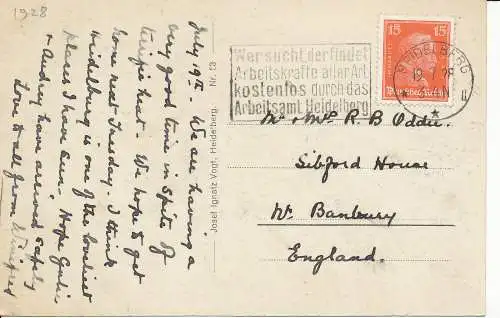 1928
July 19th. We are having a
very good time in spite of
terrific heat. We hope to get
home next Tuesday. I think
Heidelburg is one of the loveliest
places I have seen. Hope
& Audrey have arrived safely
Love to all from Winifred
Josef Ignatz Vogt, Heidelberg. Nr. 13
Wer sucht der findet
Arbeitskräfte aller Art
kostenlos durch das
Arbeitsamt Heidelberg
HEIDELBERG
15 15
Deutsches Reich
Mr & Mrs R. B Oddie
Sibford House
Nr. Banbury
England.